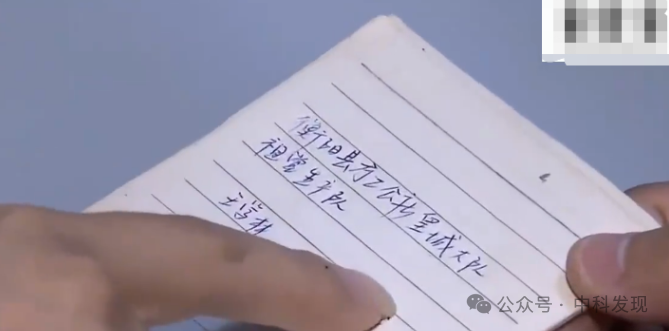 衡阳县
皇城大队
祖堂生产队
王学林
公众号·中科发现